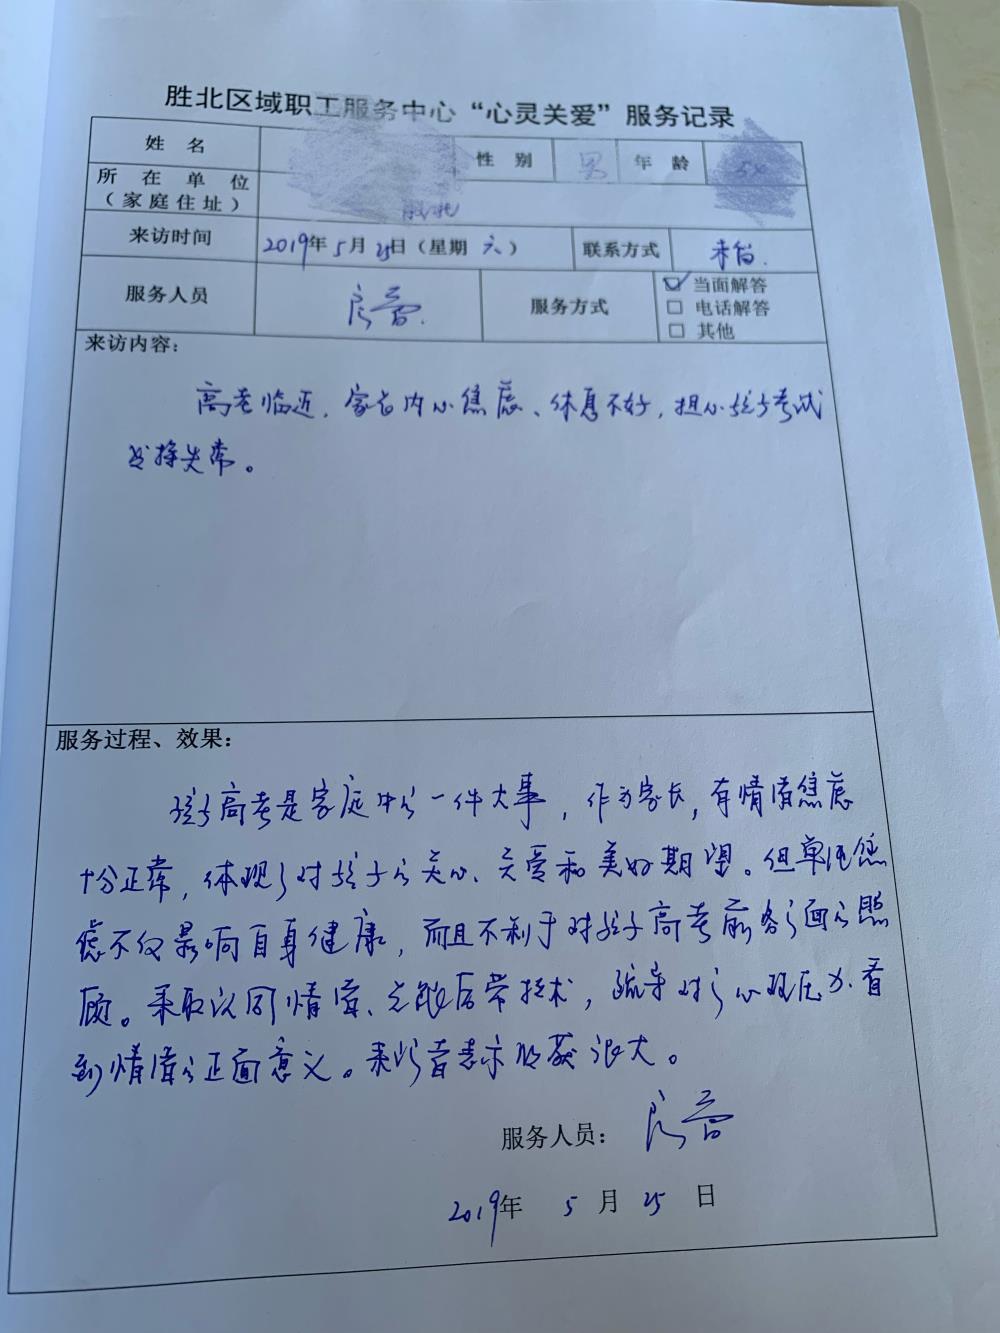 胜北区域职工服务中心“心灵关爱”服务记录
姓 名 性 别 男 年 龄
所 在 单 位
（家庭住址）
来访时间 2019年5月25日（星期 六） 联系方式 来访
服务人员 服务方式 ☑ 当面解答
□ 电话解答
□ 其他
来访内容：
高考临近，家长内心焦虑、休息不好，担心孩子考试
发挥失常。
服务过程、效果：
孩子高考是家庭中的一件大事，作为家长，有情绪焦虑
十分正常，体现了对孩子的关心、关爱和美好期望。但单纯焦
虑不仅影响自身健康，而且不利于对孩子高考前各方面的照
顾。采取认同情绪、技术，疏导对方心理压力、看
到情绪的正面意义。来访者表示收获很大。
服务人员：
2019年 5 月 25 日